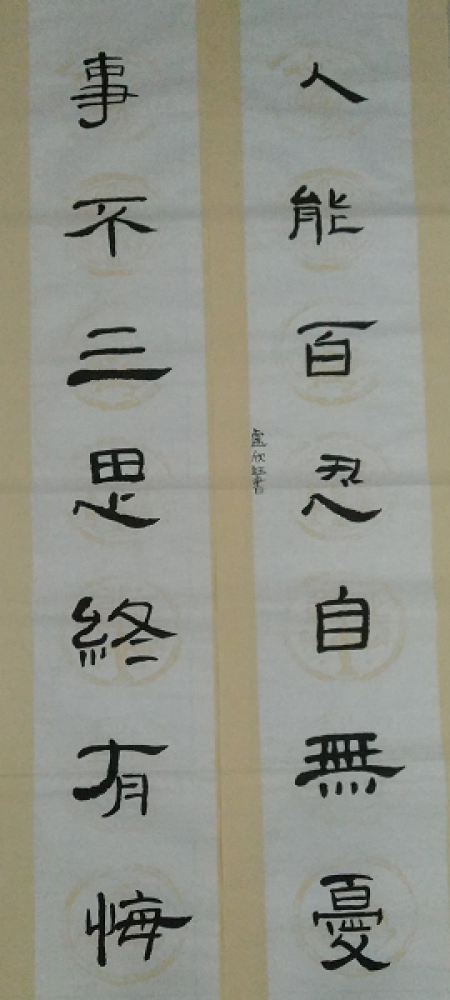 事不三思終有悔
人能百忍自無憂